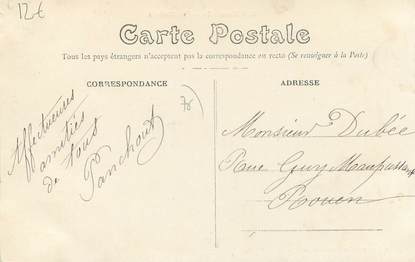 12€
Carte Postale
Tous les pays étrangers n'acceptent pas la correspondance au recto (Se renseigner à la Poste)
CORRESPONDANCE
ADRESSE
Affectueuses
amitiés
de tous
Panchout
Monsieur Dubée
Rue Guy Maupassant
Rouen